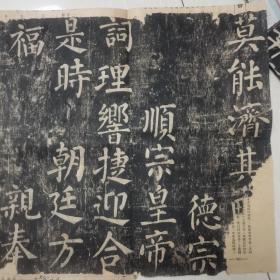 莫能濟其
德宗
順宗皇帝
詞理響捷迎合
是時 朝廷方
福 親奉